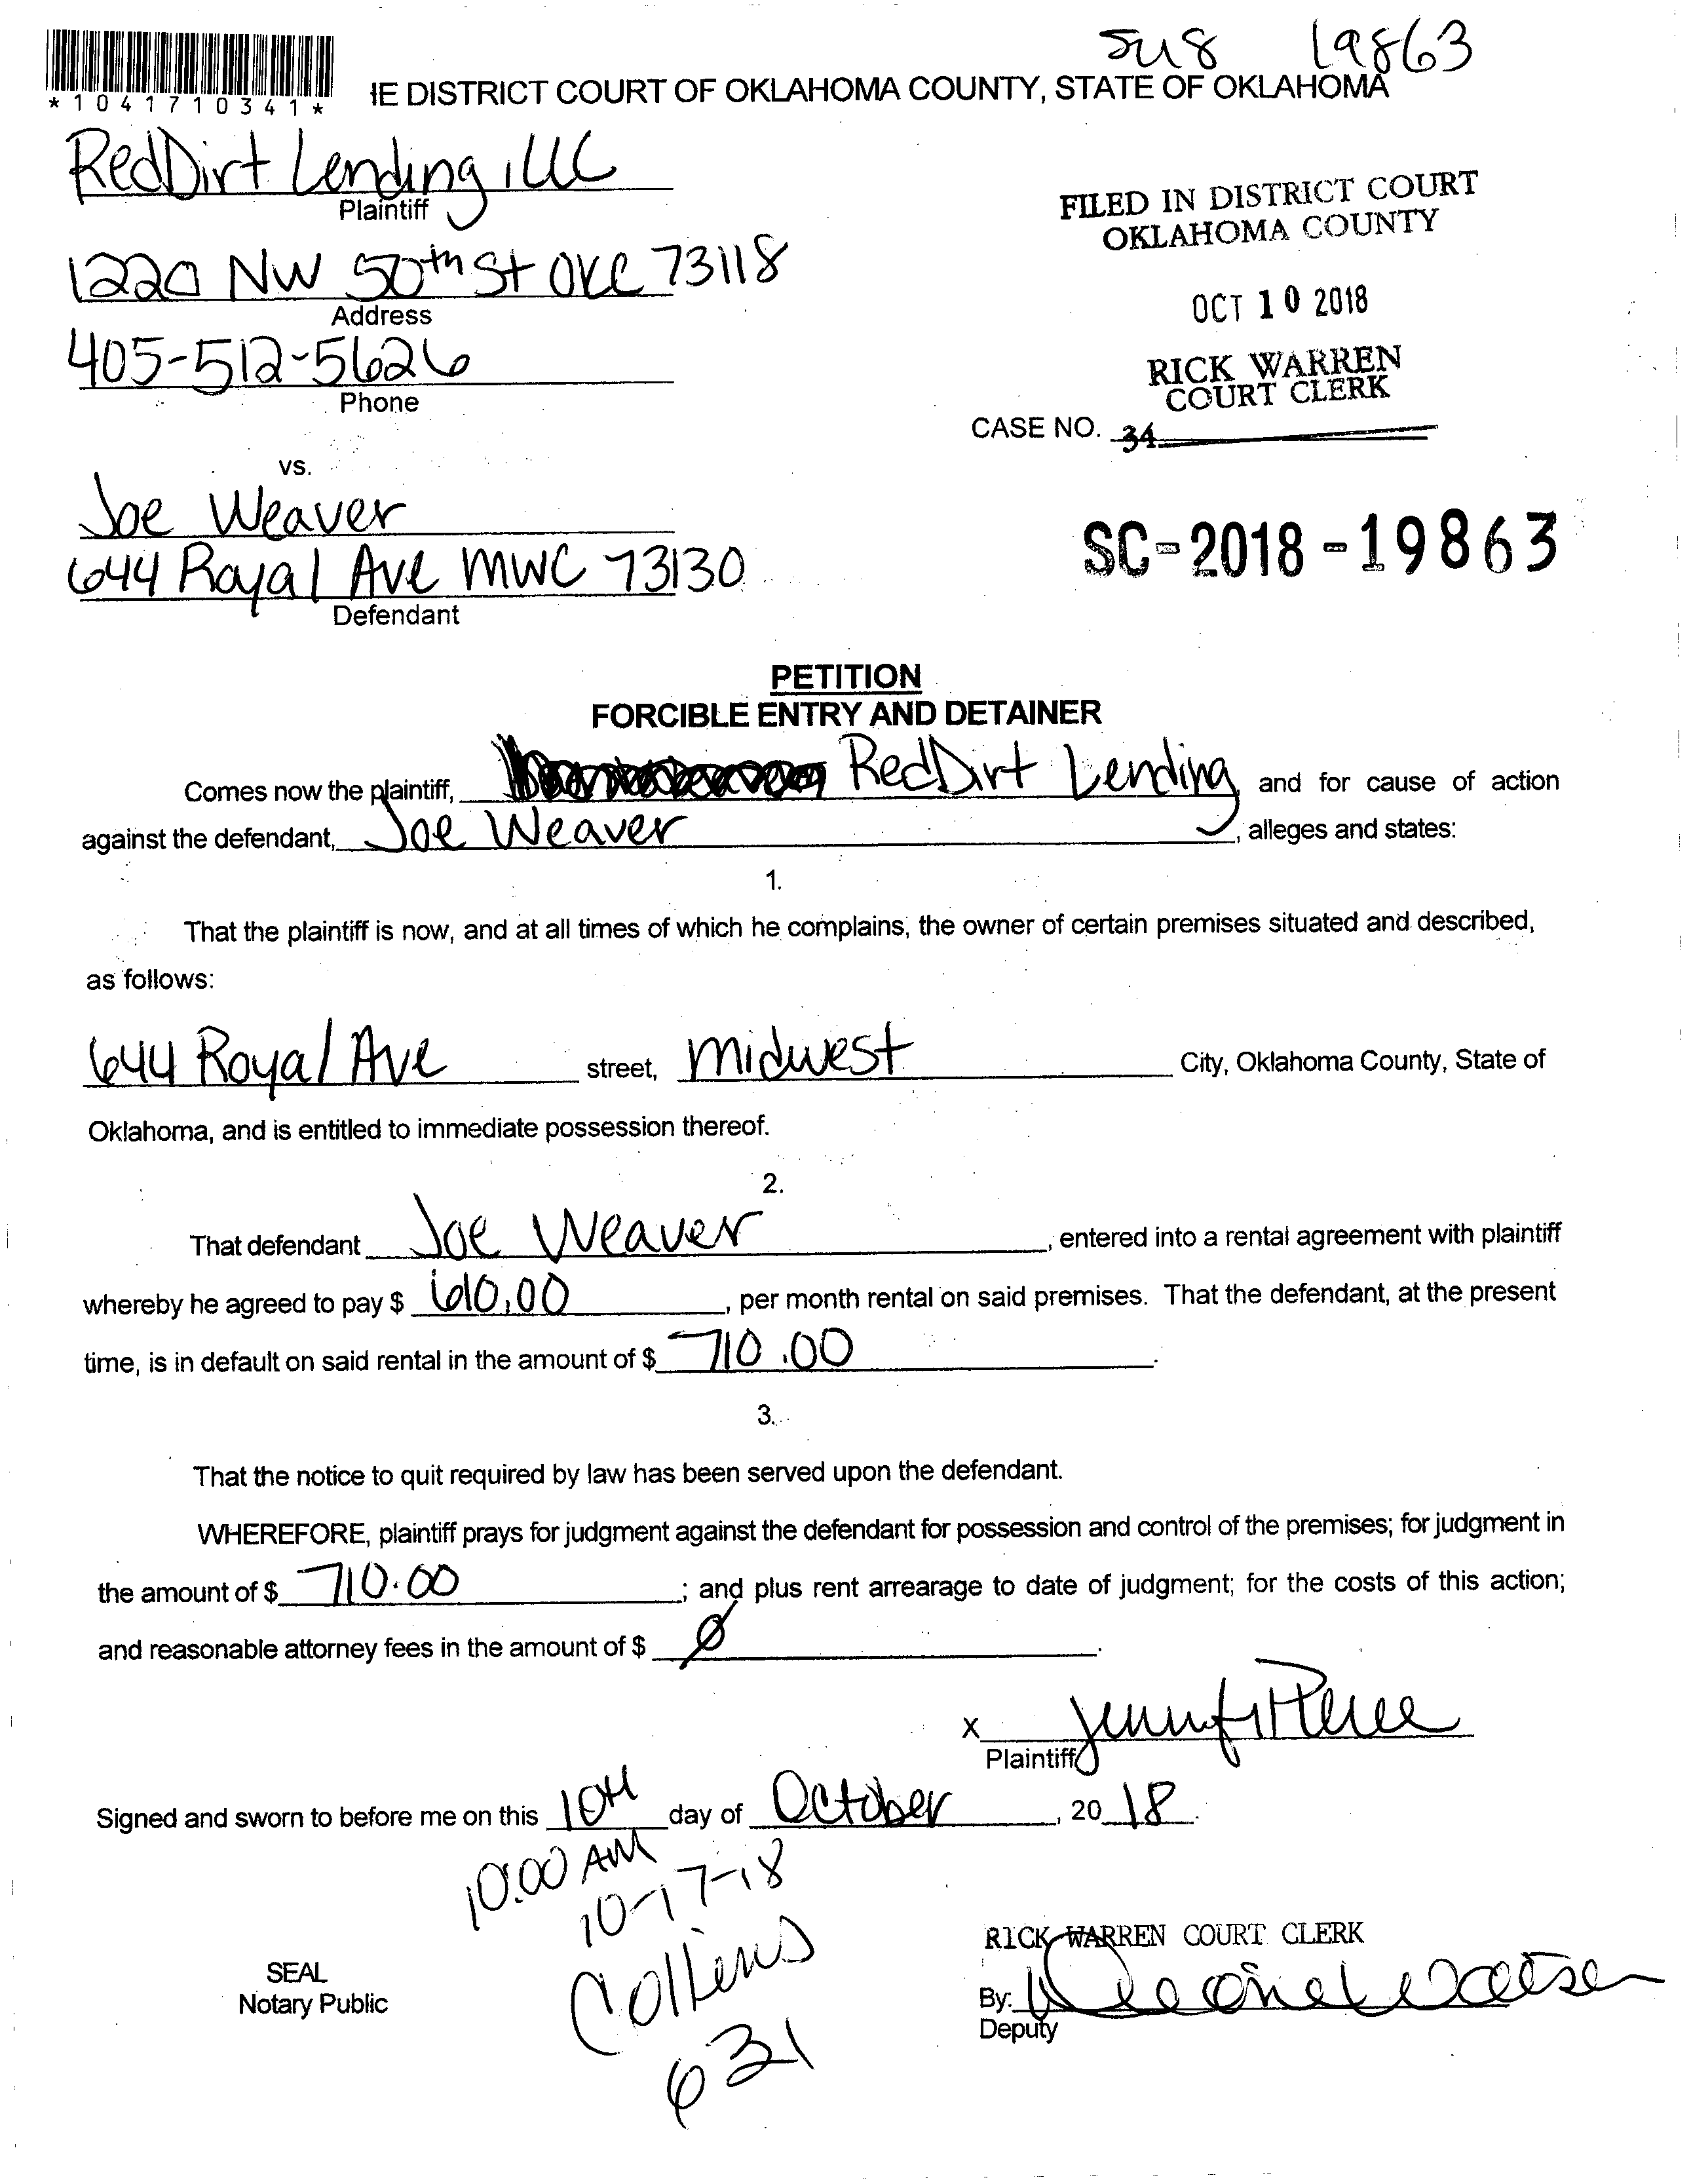 19863
*1041710341*
IE DISTRICT COURT OF OKLAHOMA COUNTY, STATE OF OKLAHOMA
RedDirt Lending, LLC
Plaintiff
FILED IN DISTRICT COURT
OKLAHOMA COUNTY
1220 NW 50th St OKC 73118
Address
OCT 10 2018
405-512-5626
Phone
RICK WARREN
COURT CLERK
CASE NO. 34
vs.
Joe Weaver
644 Royal Ave MWC 73130
Defendant
SC-2018-19863
PETITION
FORCIBLE ENTRY AND DETAINER
Comes now the plaintiff, RedDirt Lending and for cause of action
against the defendant, Joe Weaver, alleges and states:
1.
That the plaintiff is now, and at all times of which he complains, the owner of certain premises situated and described,
as follows:
644 Royal Ave street, Midwest City, Oklahoma County, State of
Oklahoma, and is entitled to immediate possession thereof.
2.
That defendant Joe Weaver, entered into a rental agreement with plaintiff
whereby he agreed to pay $ 610.00, per month rental on said premises. That the defendant, at the present
time, is in default on said rental in the amount of $ 710.00.
3.
That the notice to quit required by law has been served upon the defendant.
WHEREFORE, plaintiff prays for judgment against the defendant for possession and control of the premises; for judgment in
the amount of $ 710.00; and plus rent arrearage to date of judgment; for the costs of this action;
and reasonable attorney fees in the amount of $ Ø.
X Jennifer
Plaintiff
Signed and sworn to before me on this 10th day of October, 2018.
10:00 AM
10-17-18
Collins
631
SEAL
Notary Public
RICK WARREN COURT CLERK
By:
Deputy